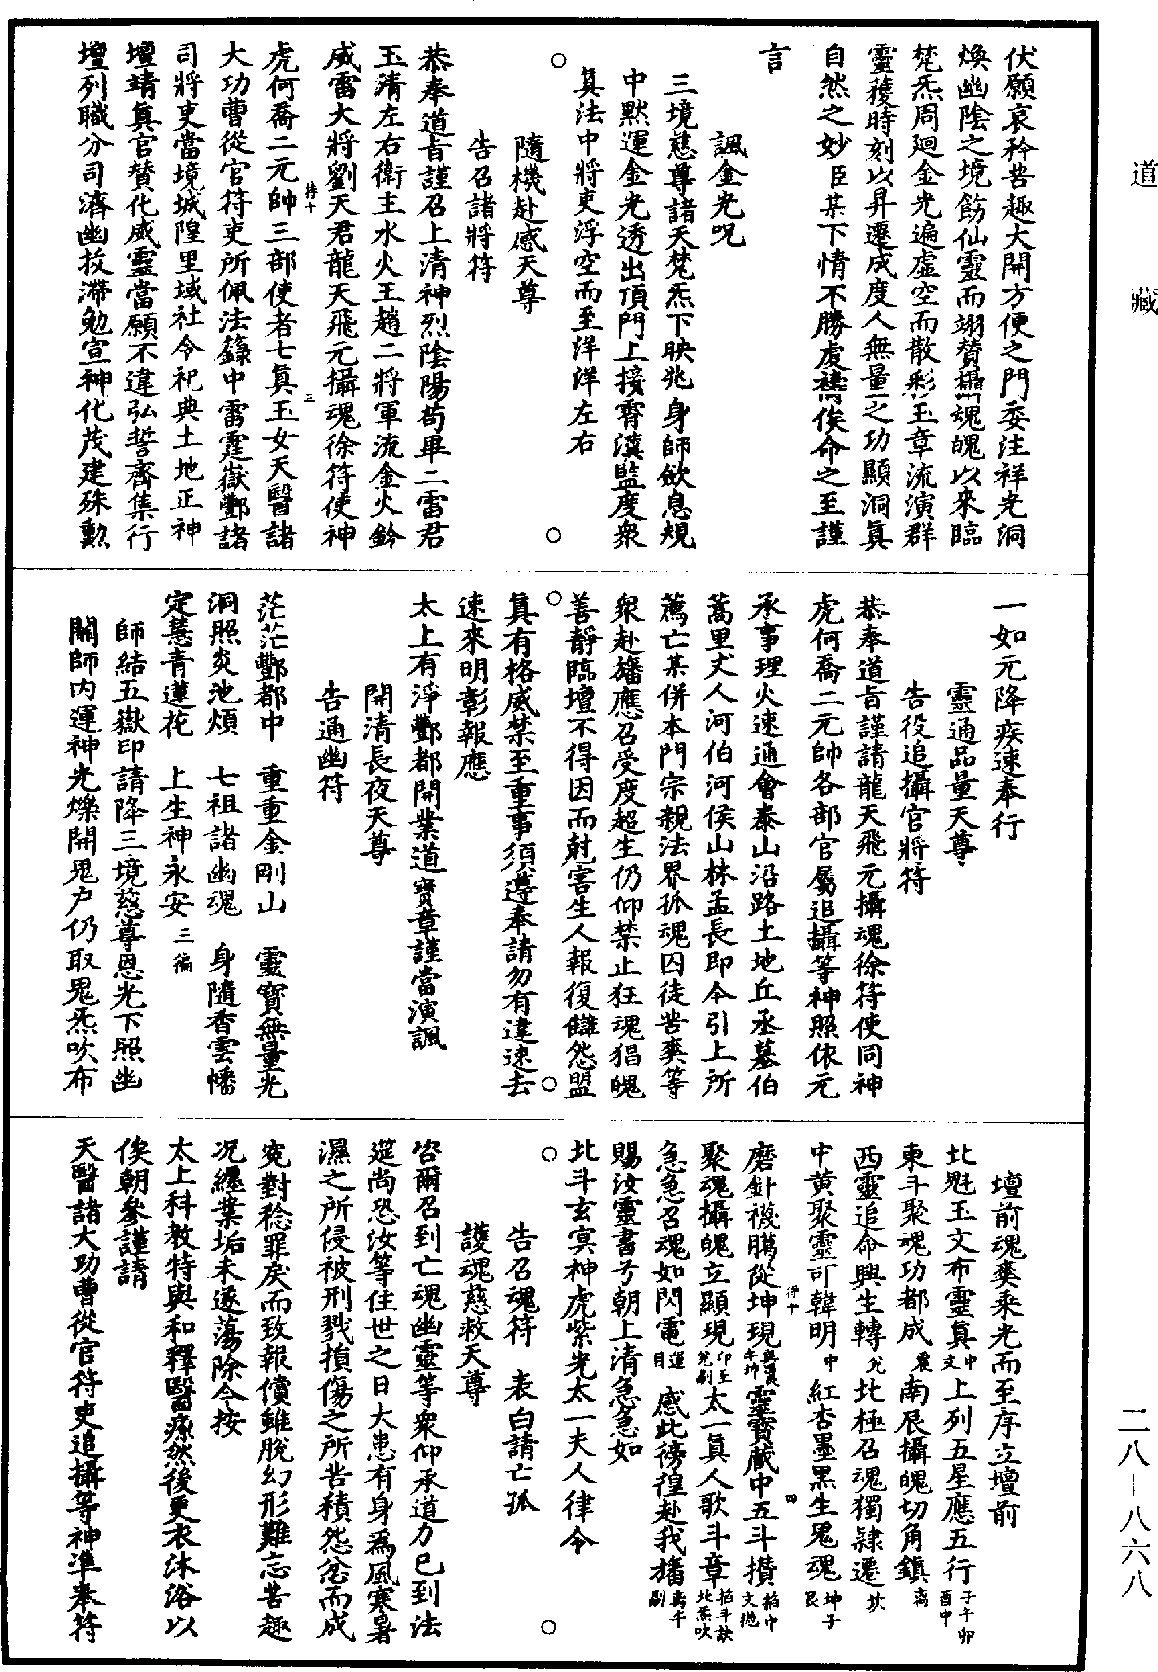 道藏
二八—八六八
伏願哀矜苦趣大開方便之門委注祥光洞
煥幽陰之境飭仙靈而翊贊攝魂魄以來臨
梵炁周迴金光遍虛空而散彩玉章流演群
靈穫時刻以昇遷成度人無量之功顯洞真
自然之妙臣某下情不勝虔禱俟命之至謹
言
諷金光呪
三境慈尊諸天梵炁下映兆身師歛息規
中默運金光透出頂門上接霄漢監度衆
真法中將吏浮空而至洋洋左右
○
隨機赴感天尊
○
告召諸將符
恭奉道旨謹召上清神烈陰陽苟畢二雷君
玉清左右衛主水火王趙二將軍流金火鈴
威雷大將劉天君龍天飛元攝魂徐符使神
虎何喬二元帥三部使者七真玉女天醫諸
大功曹從官符吏所佩法籙中雷霆嶽酆諸
司將吏當境城隍里域社令祀典土地正神
壇靖真官贊化威靈當願不違弘誓齊集行
壇列職分司濟幽拔滯勉宣神化茂建殊勲
一如元降疾速奉行
靈通品量天尊
告役追攝官將符
恭奉道旨謹請龍天飛元攝魂徐符使同神
虎何喬二元帥各部官屬追攝等神照依元
承事理火速通會泰山沿路土地丘丞墓伯
蒿里丈人河伯河侯山林孟長即今引上所
薦亡某併本門宗親法界孤魂囚徒苦爽等
衆赴旛應召受度超生仍仰禁止狂魂猖魄
善靜臨壇不得因而尅害生人報復讎怨盟
真有格威禁至重事須遵奉請勿有違速去
速來明彰報應
太上有淨酆都開業道寶章謹當演諷
○
開清長夜天尊
○
告通幽符
茫茫酆都中　重重金剛山　靈寶無量光
洞照炎池煩　七祖諸幽魂　身隨香雲幡
定慧青蓮花　上生神永安三徧
師結五嶽印請降三境慈尊恩光下照幽
關師內運神光爍開鬼户仍取鬼炁吹布
壇前魂爽乘光而至序立壇前
北魁玉文布靈真中文上列五星應五行子午卯酉中
東斗聚魂功都成震南辰攝魄切角鎮離
西靈追命興生轉兌北極召魂獨隸遷坎
中黄聚靈可韓明中紅杏墨黑生鬼魂坤子艮
磨針襪膓從坤現靈寶藏中五斗攢
聚魂攝魄立顯現太一真人歌斗章
急急召魂如閃電感此徬徨赴我旛
賜汝靈書兮朝上清急急如
北斗玄冥神虎紫光太一夫人律令
告召魂符　表白請亡孤
○
護魂慈救天尊
○
咨爾召到亡魂幽靈等衆仰承道力已到法
筵尚恐汝等住世之日大患有身爲風寒暑
濕之所侵被刑戮損傷之所苦積怨忿而成
寃對稔罪戾而致報償雖脫幻形難忘苦趣
况纏業垢未遂蕩除今按
太上科教特與和釋醫療然後更衣沐浴以
俟朝參謹請
天醫諸大功曹從官符吏追攝等神準奉符